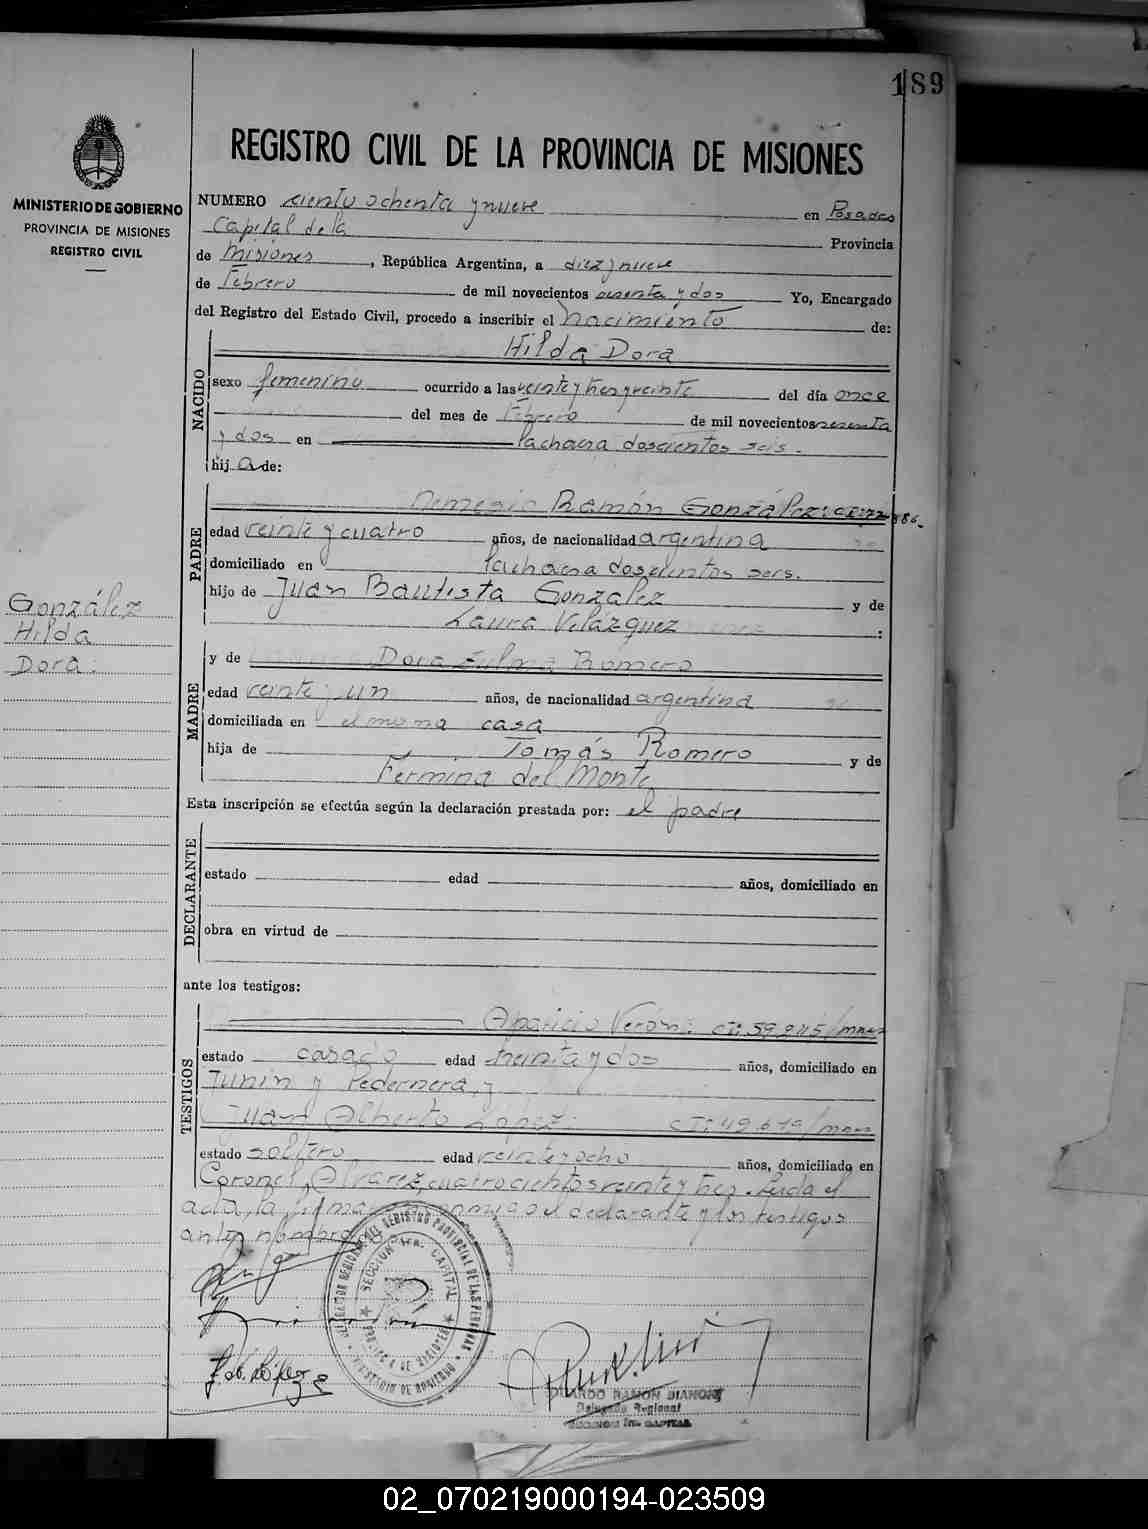 189
REGISTRO CIVIL DE LA PROVINCIA DE MISIONES
MINISTERIO DE GOBIERNO
PROVINCIA DE MISIONES
REGISTRO CIVIL
NUMERO ciento ochenta y nueve en Posadas
Capital de la Provincia
de Misiones, República Argentina, a diez y nueve
de Febrero de mil novecientos sesenta y dos Yo, Encargado
del Registro del Estado Civil, procedo a inscribir el nacimiento de:
NACIDO
Hilda Dora
sexo femenino ocurrido a las veinte y tres y veinte del día once
del mes de Febrero de mil novecientos sesenta
y dos en Lachaera doscientos seis.
hija de:
PADRE
Nemesio Ramón González
edad veinte y cuatro años, de nacionalidad argentina
domiciliado en doscientos seis.
hijo de Juan Bautista Gonzalez y de
Laura Velázquez :
González
Hilda
Dora.
MADRE
y de Dora Zulma Romero
edad veinte y un años, de nacionalidad argentina
domiciliada en casa
hija de Tomás Romero y de
Fermina del Monte
Esta inscripción se efectúa según la declaración prestada por: el padre
DECLARANTE
estado edad años, domiciliado en
obra en virtud de
ante los testigos:
TESTIGOS
Aparicio Verón: CI: 59.245/mnes
estado casado edad treinta y dos años, domiciliado en
Junin y Pedernera, y
Juan Alberto López: CI: 49.619/mnes
estado soltero edad veinte y ocho años, domiciliado en
Coronel Alvarez, cuatrocientos veinte y tres. Leida el
acta, la firma conmigo el declarante y los testigos
antes nombrados
SECCION 1ra. CAPITAL
MINISTERIO DE GOBIERNO
J. A. López
EDUARDO RAMON BIANCHI
Delegado Regional
SECCION 1ra. CAPITAL
02_070219000194-023509